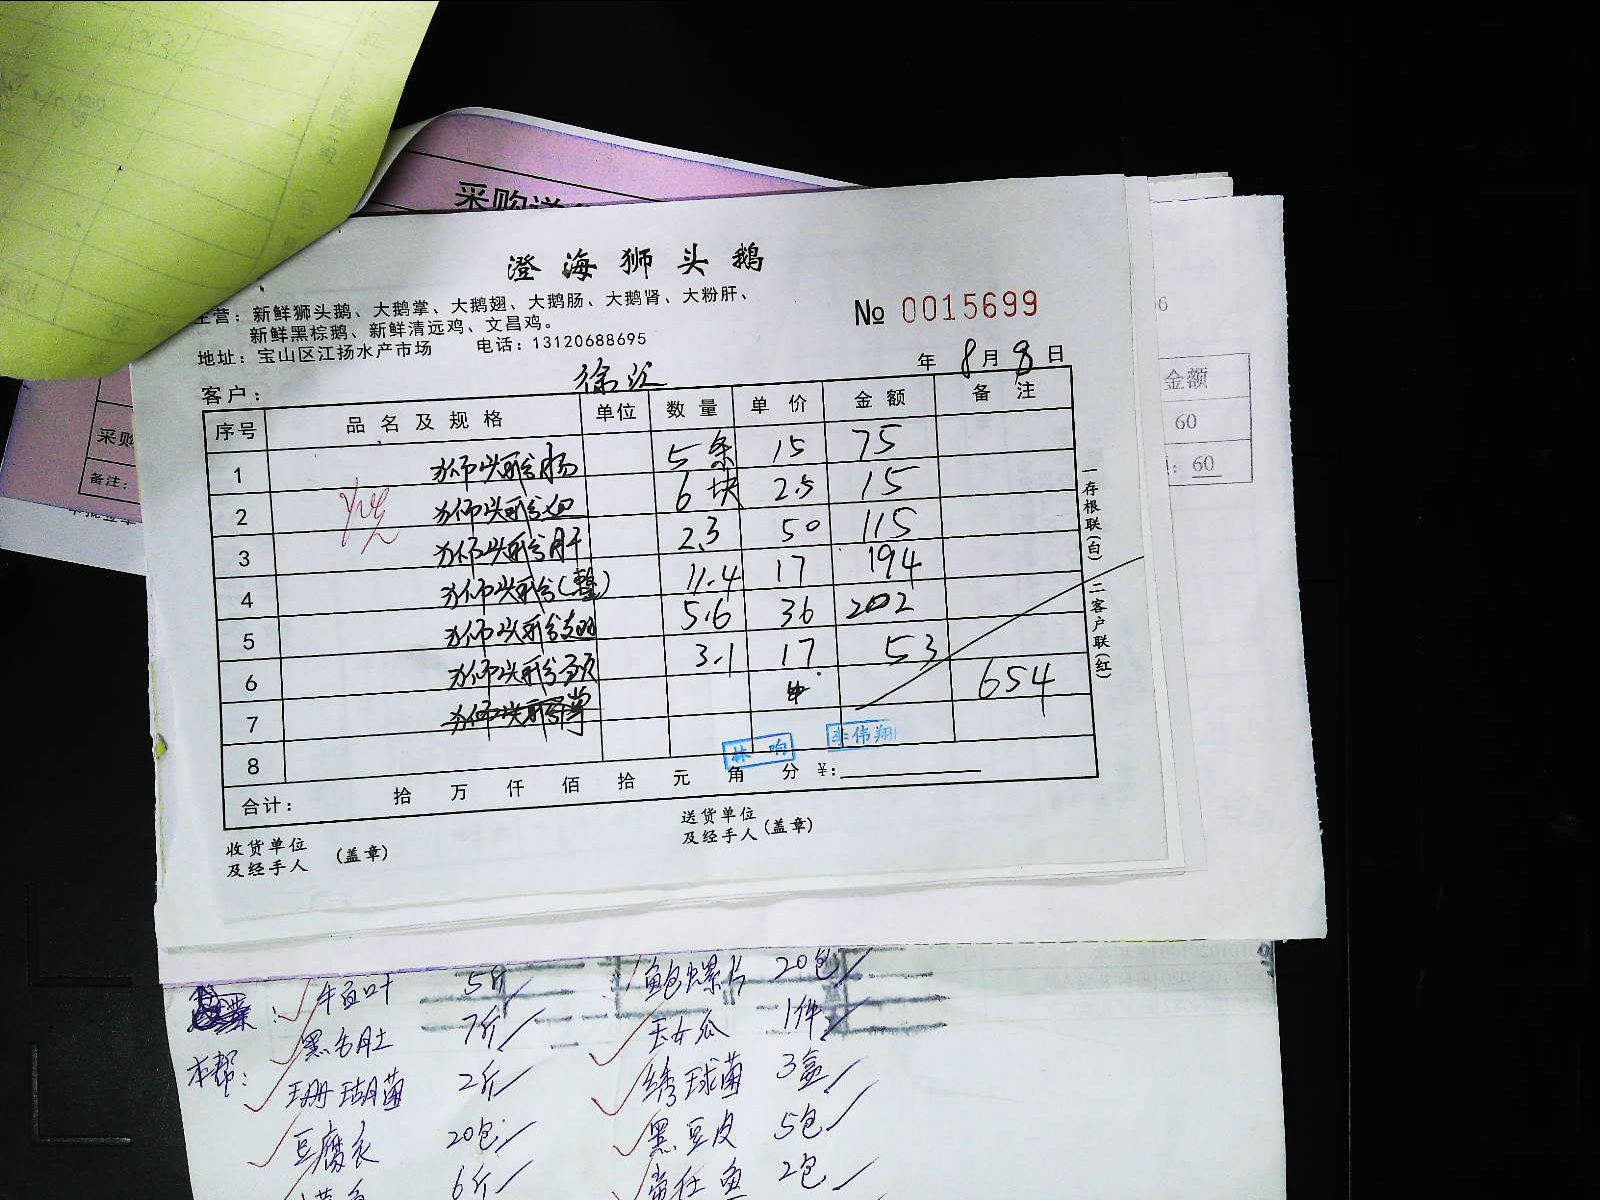 采购送
澄海狮头鹅
主营：新鲜狮头鹅、大鹅掌、大鹅翅、大鹅肠、大鹅肾、大粉肝、
新鲜黑棕鹅、新鲜清远鸡、文昌鸡。
地址：宝山区江扬水产市场 电话：13120688695
№ 0015699
年 8月8日
客户：
序号 品名及规格 单位 数量 单价 金额 备注
1 狮头鹅肠 5条 15 75
2 狮头鹅 6块 2.5 15
3 狮头鹅肝 2.3 50 115
4 狮头鹅(整) 11.4 17 194
5 狮头鹅翅 5.6 36 202
6 狮头鹅颈 3.1 17 53
7 狮头鹅掌 654
8
合计： 拾 万 仟 佰 拾 元 角 分 ¥：
林响 李伟翔
收货单位
及经手人 (盖章)
送货单位
及经手人 (盖章)
一存根联(白) 二客户联(红)
采购
备注：
金额
60
60
菜： 牛百叶 5斤 鲍螺片 20包
黑毛肚 7斤 玉女瓜 1件
本帮： 珊瑚菌 2斤 绣球菌 3盒
豆腐衣 20包 黑豆皮 5包
6斤 2包